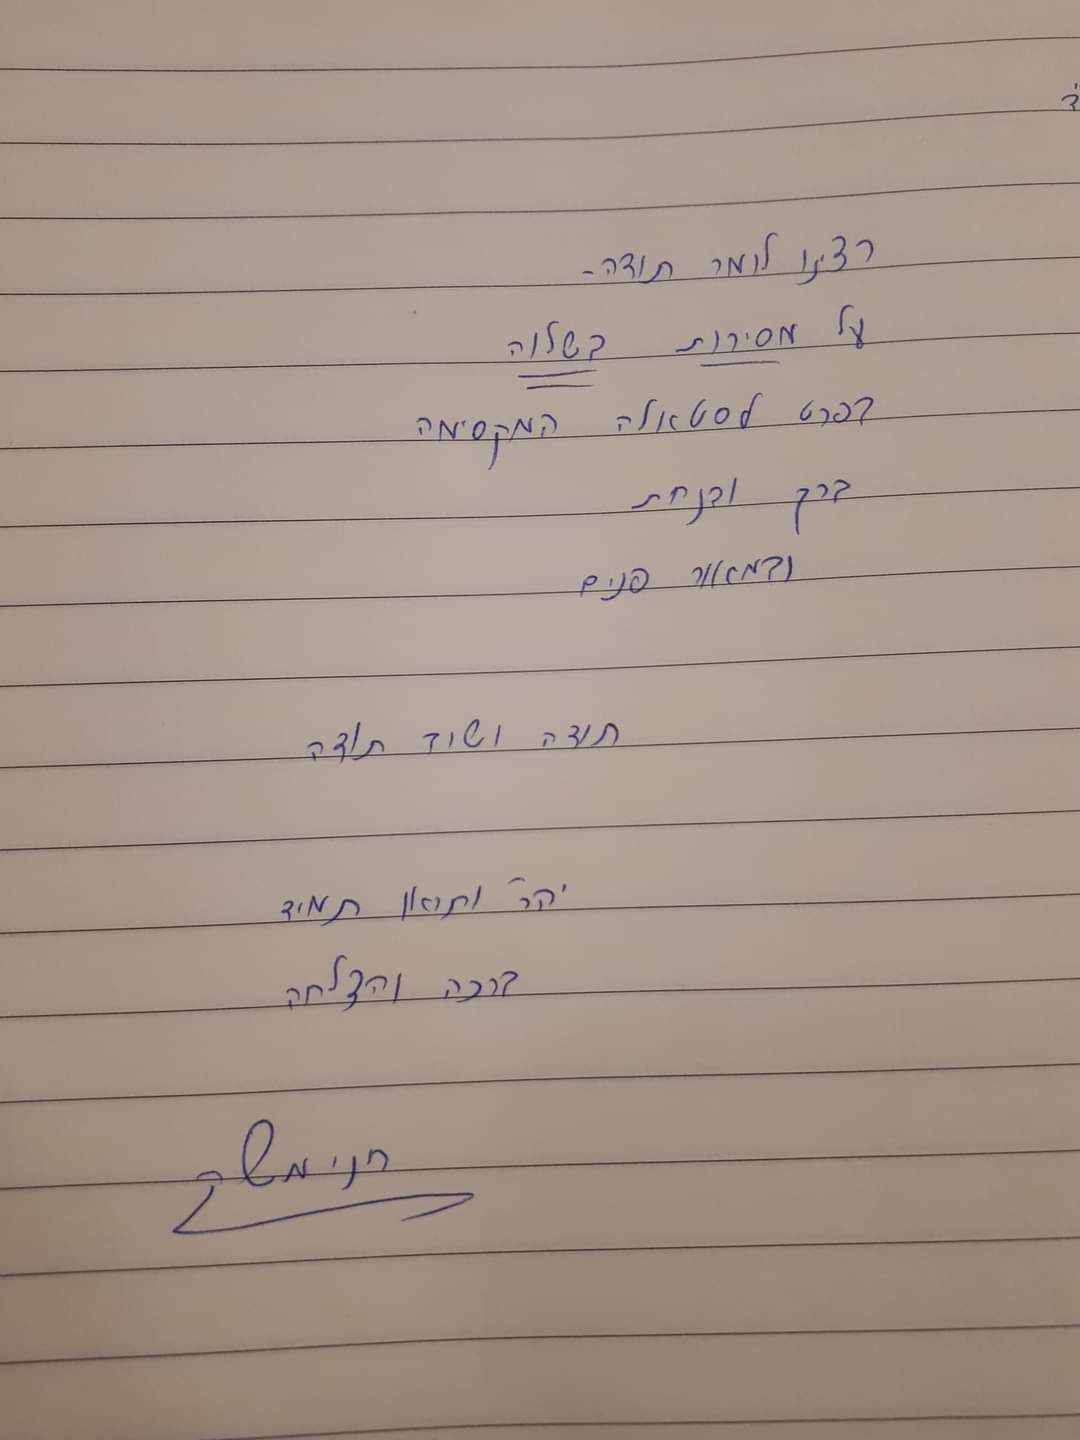 רצינו לומר תודה-
על מסירות בשלוה
בפרט לסטאלה המקסימה
ברך ובנחת
ובמאור פנים
תודה ושוב תודה
יהר ותראו תמיד
ברכה והצלחה
חני משה